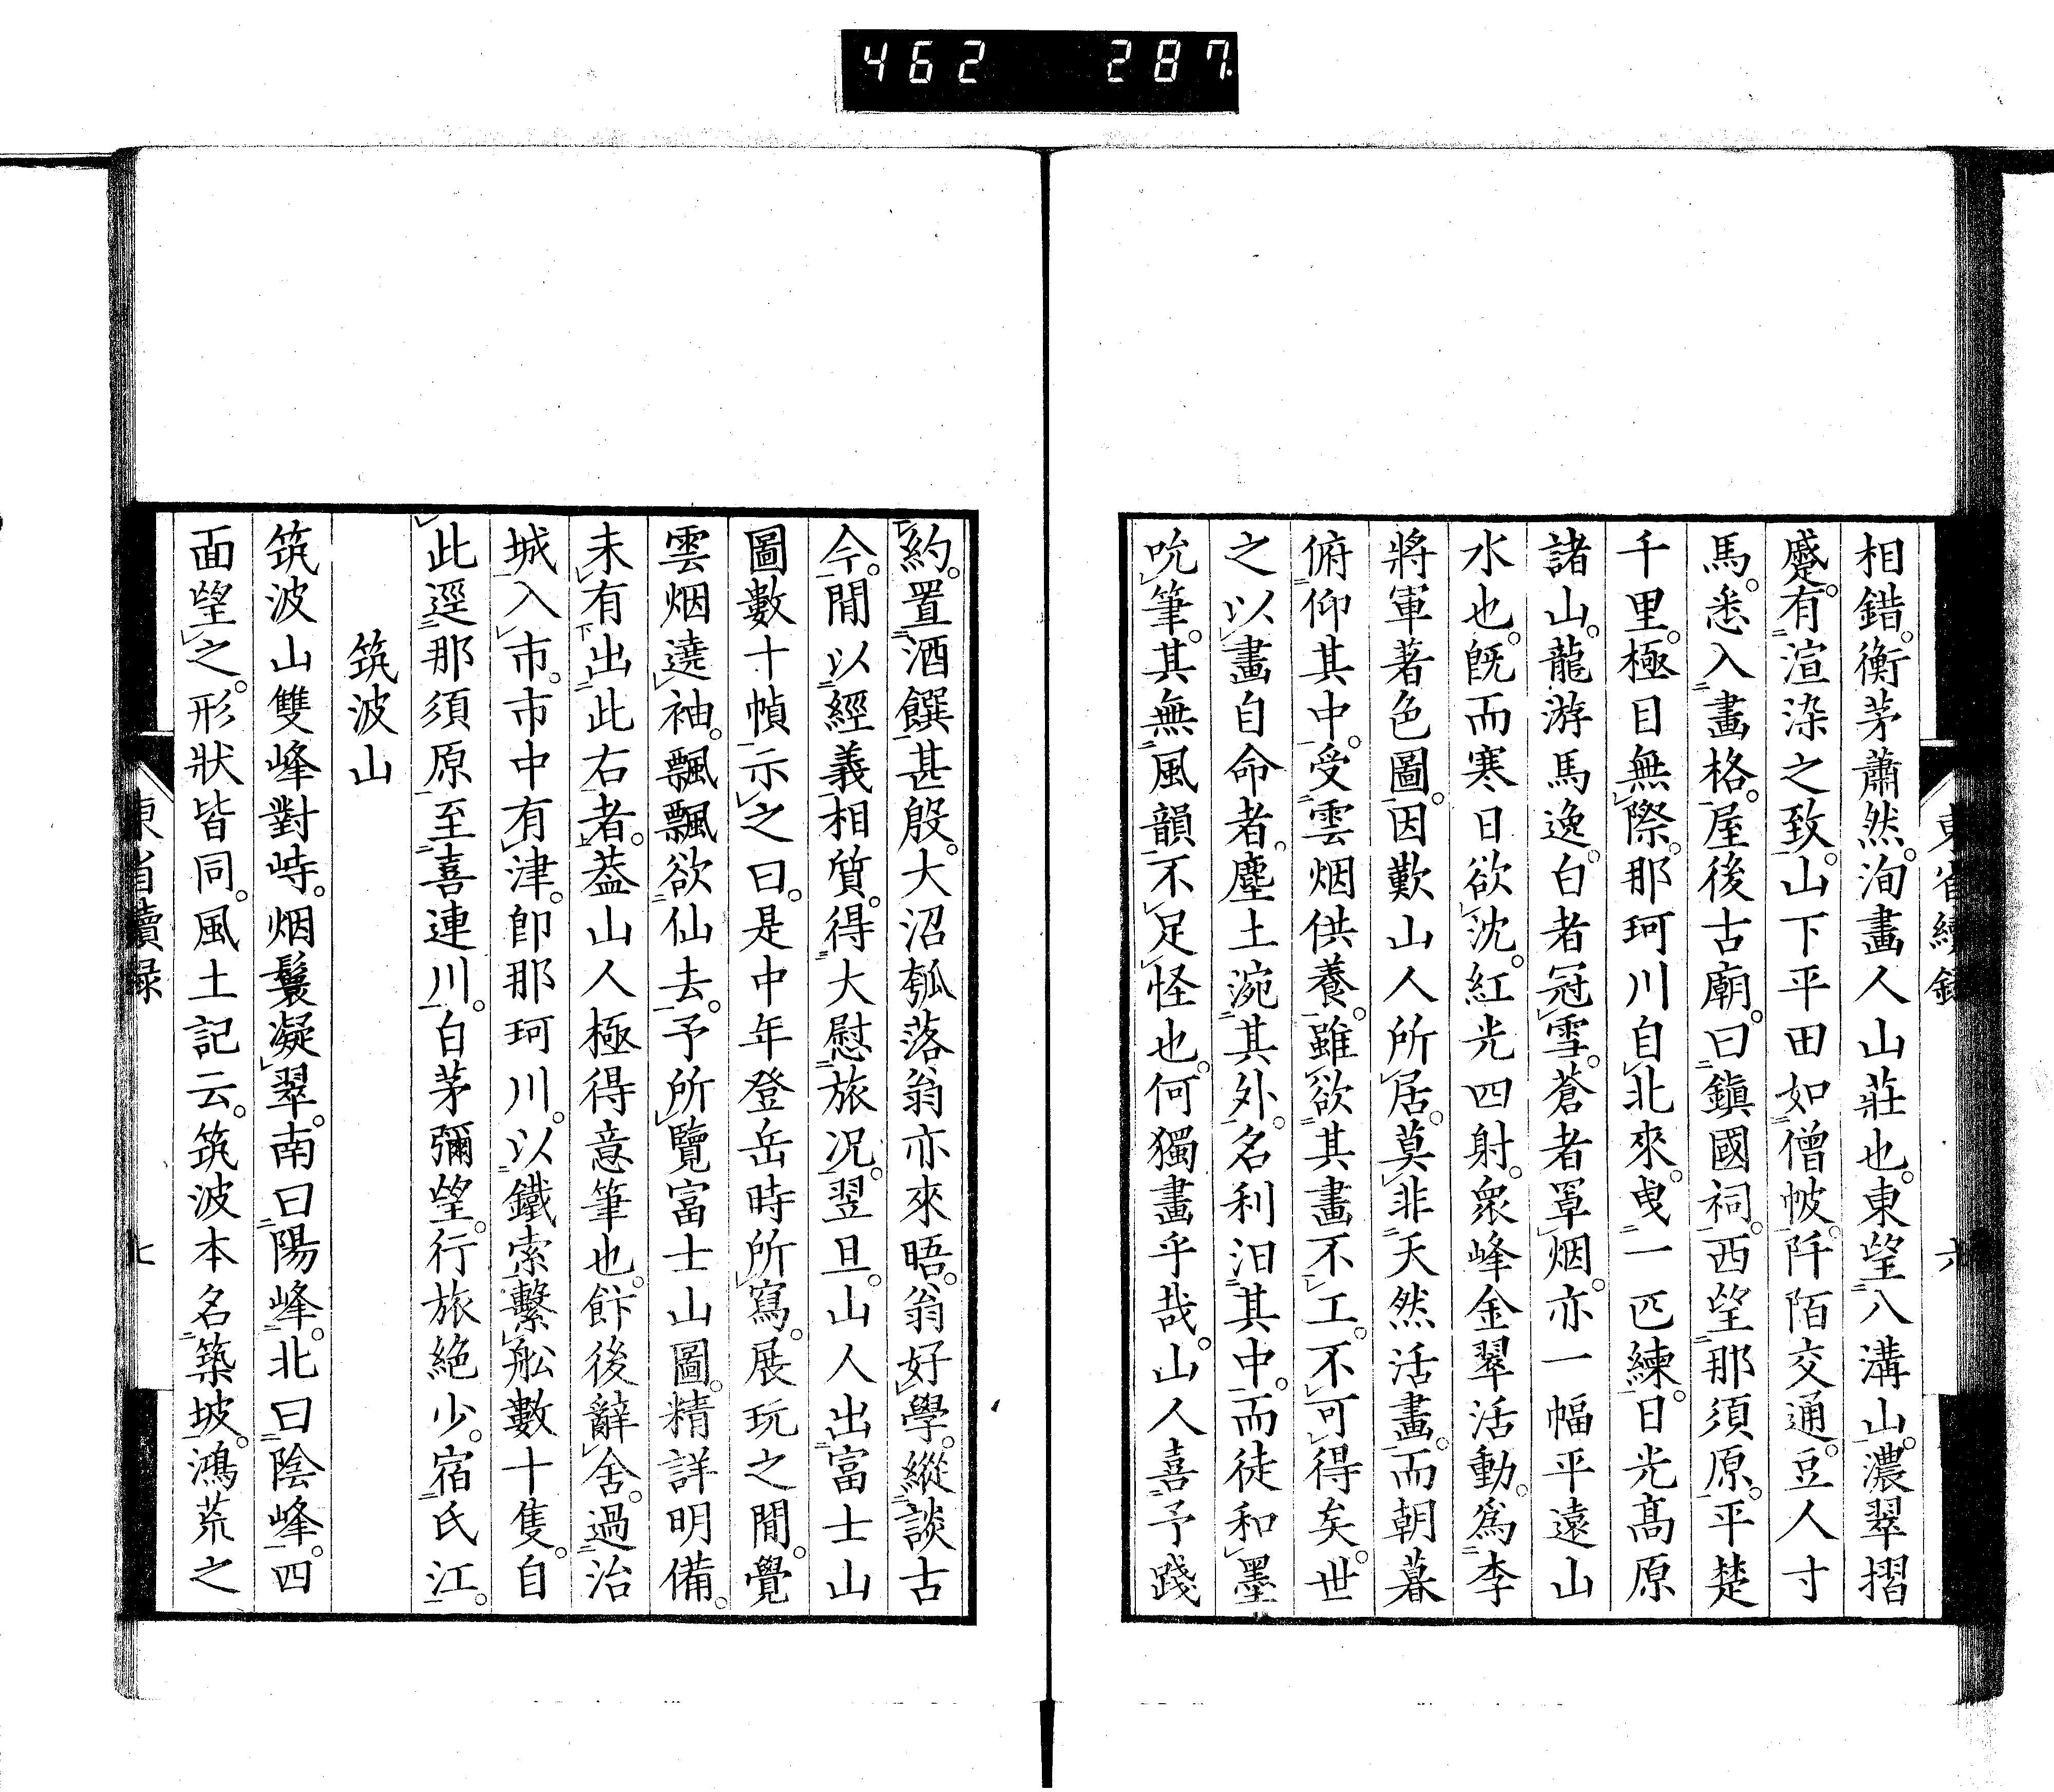 462 287.
相錯。衡茅蕭然。洵畫人山莊也。東望八溝山。濃翠摺
蹙。有渲染之致。山下平田如僧帔。阡陌交通。豆人寸
馬。悉入畫格。屋後古廟。曰鎭國祠。西望那須原。平楚
千里。極目無際。那珂川自北來。曳一匹練。日光高原
諸山。龍游馬逸。白者冠雪。蒼者罩烟。亦一幅平遠山
水也。旣而寒日欲沈。紅光四射。衆峰金翠活動。爲李
將軍著色圖。因歎山人所居。莫非天然活畫。而朝暮
俯仰其中。受雲烟供養。雖欲其畫不工。不可得矣。世
之以畫自命者。塵土涴其外。名利汩其中。而徒和墨
吮筆。其無風韻不足怪也。何獨畫乎哉。山人喜予踐
約。置酒饌甚殷。大沼瓠落翁亦來晤。翁好學。縱談古
今。閒以經義相質。得大慰旅况。翌旦。山人出富士山
圖數十幀示之曰。是中年登岳時所寫。展玩之閒。覺
雲烟遶袖。飄飄欲仙去。予所覽富士山圖。精詳明備。
未有出此右者。葢山人極得意筆也。飰後辭舍。過治
城入市。市中有津。卽那珂川。以鐵索繫舩數十隻。自
此逕那須原至喜連川。白茅彌望。行旅絶少。宿氏江。
筑波山
筑波山雙峰對峙。烟鬟凝翠。南曰陽峰。北曰陰峰。四
面望之。形狀皆同。風土記云。筑波本名築坡。鴻荒之
東省續錄 六
東省續録 七